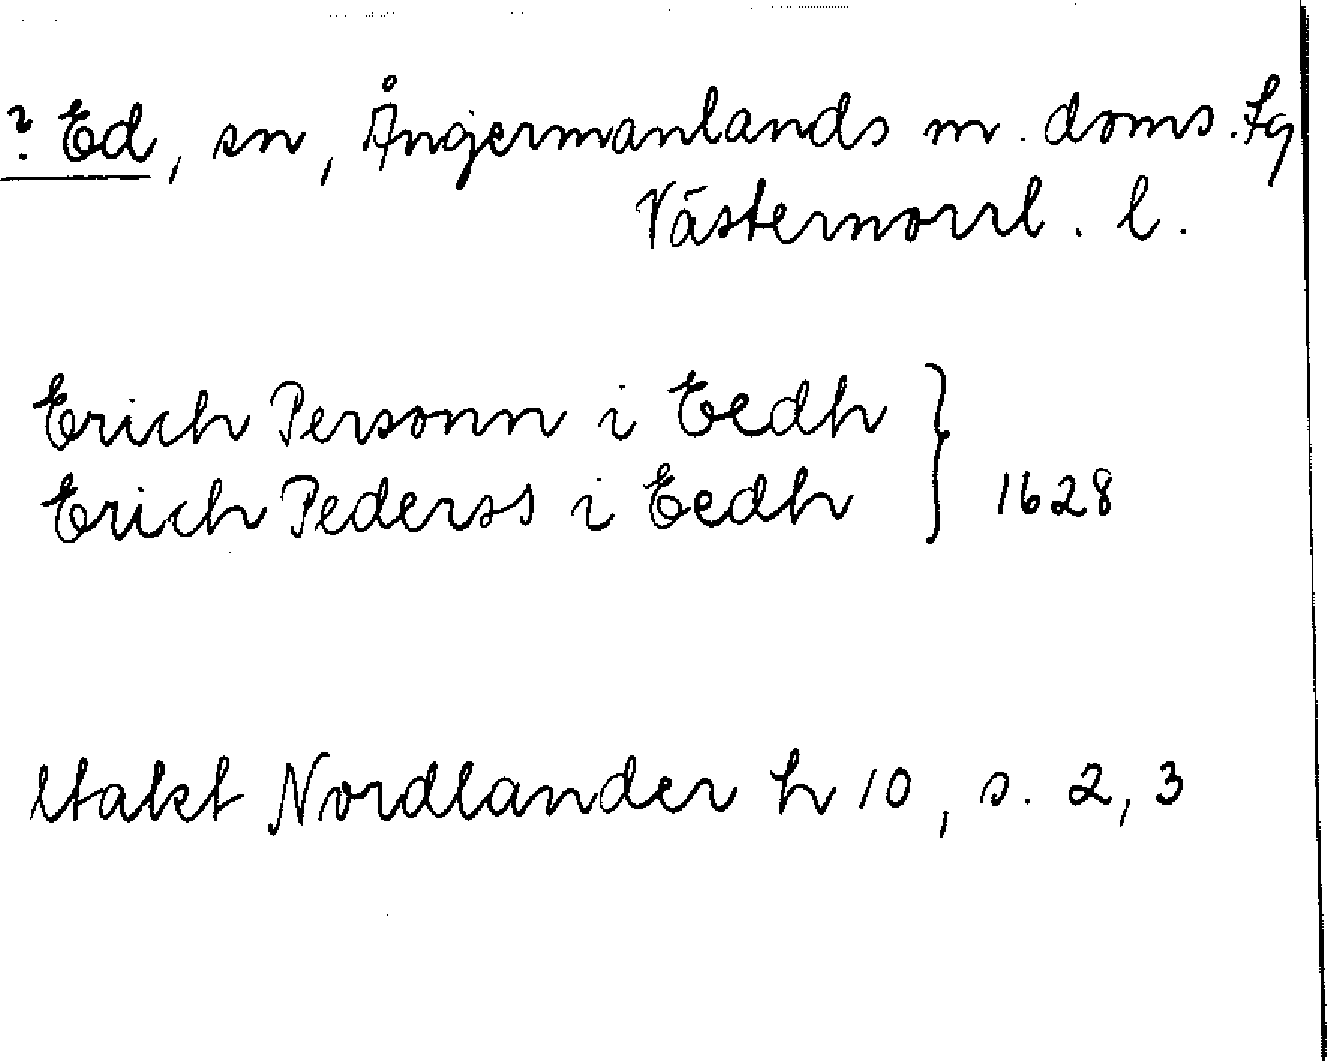 ? Ed, sn, Ångermanlands m. doms. tg
Västernorrl. l.
Erich Personn i Eedh
Erich Pederss i Eedh } 1628
Utakt Nordlander h 10, s. 2, 3